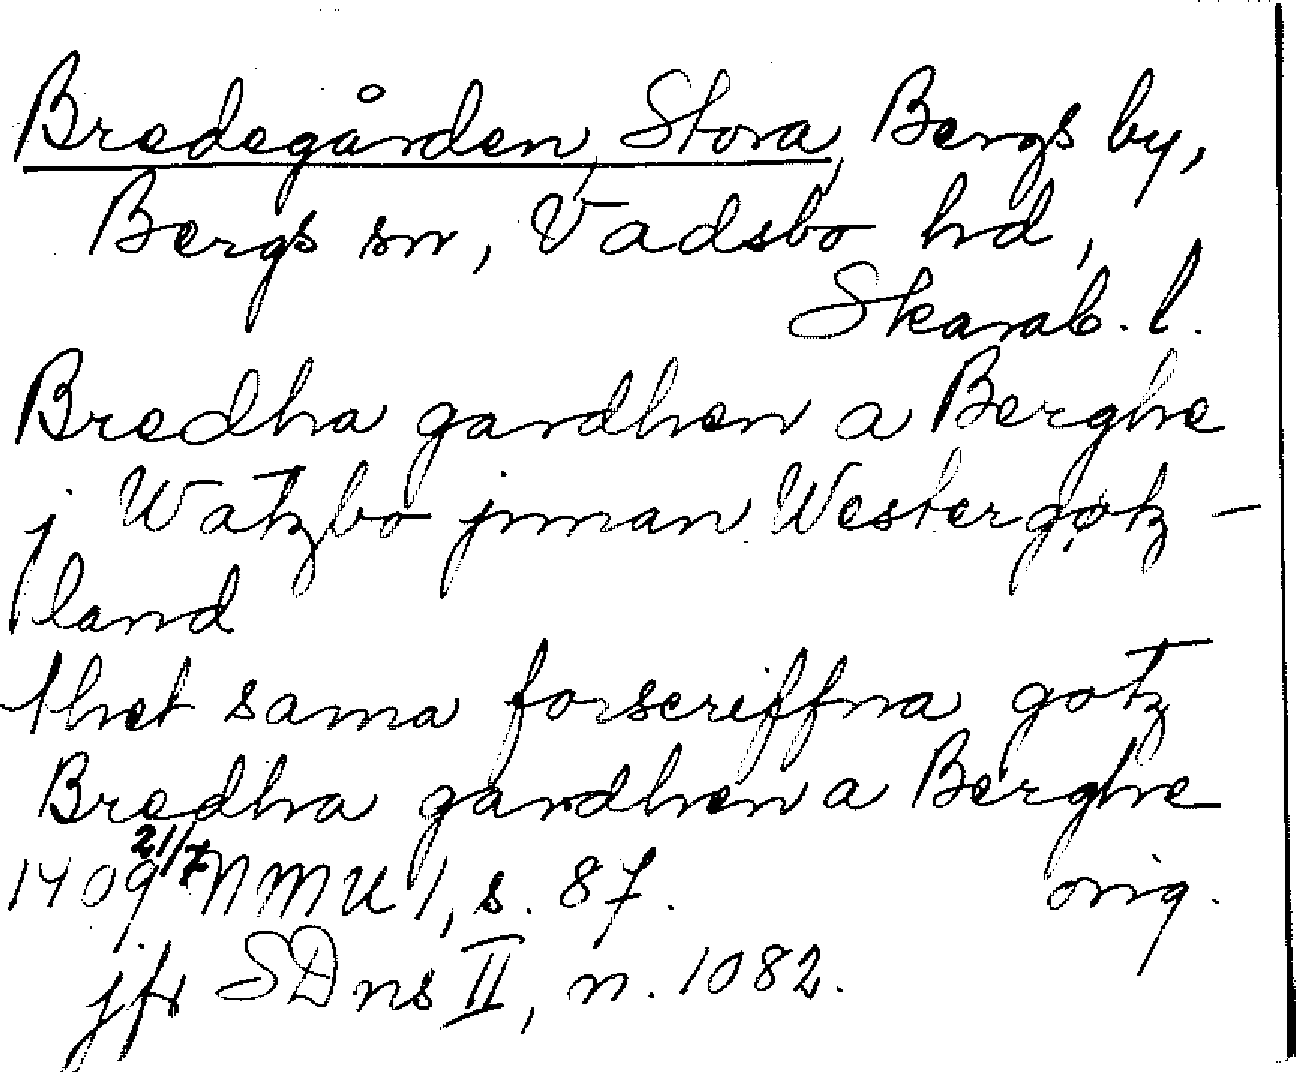 Bredegården, Stora, Bergs by,
Bergs sn, Vadsbo hd,
Skarab. l.
Bredha gardhen a Berghe
j Watzbo jnnan Westergøtz-
land
thet sama forscriffna gotz
Bredha gardhen a Berghe
1409 21/7 NMU 1, s. 87. orig.
jfr SDns II, n. 1082.